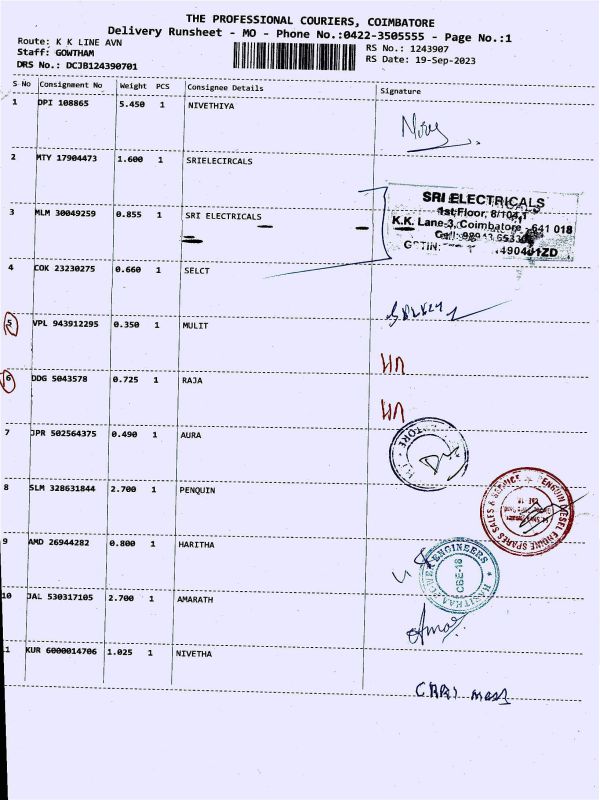 THE PROFESSIONAL COURIERS, COIMBATORE
Delivery Runsheet - MO - Phone No.:0422-3505555 - Page No.:1
Route: K K LINE AVN
RS No.: 1243907
Staff: GOWTHAM
RS Date: 19-Sep-2023
DRS No.: DCJB124390701
S No Consignment No Weight PCS Consignee Details Signature
1 DPI 108865 5.450 1 NIVETHIYA
2 MTY 17904473 1.600 1 SRIELECIRCALS
SRI ELECTRICALS
1st Floor, 8/104,1
K.K. Lane-3, Coimbatore - 641 018
3 MLM 30049259 0.855 1 SRI ELECTRICALS
4 COK 23230275 0.660 1 SELCT
5 VPL 943912295 0.350 1 MULIT
6 DDG 5043578 0.725 1 RAJA
7 JPR 502564375 0.490 1 AURA
8 SLM 328631844 2.700 1 PENQUIN
PENGUIN DIESEL ENGINE SPARES SALES & SERVICE
9 AMD 26944282 0.800 1 HARITHA
POWER ENGINEERS
CBE-18
10 JAL 530317105 2.700 1 AMARATH
11 KUR 6000014706 1.025 1 NIVETHA